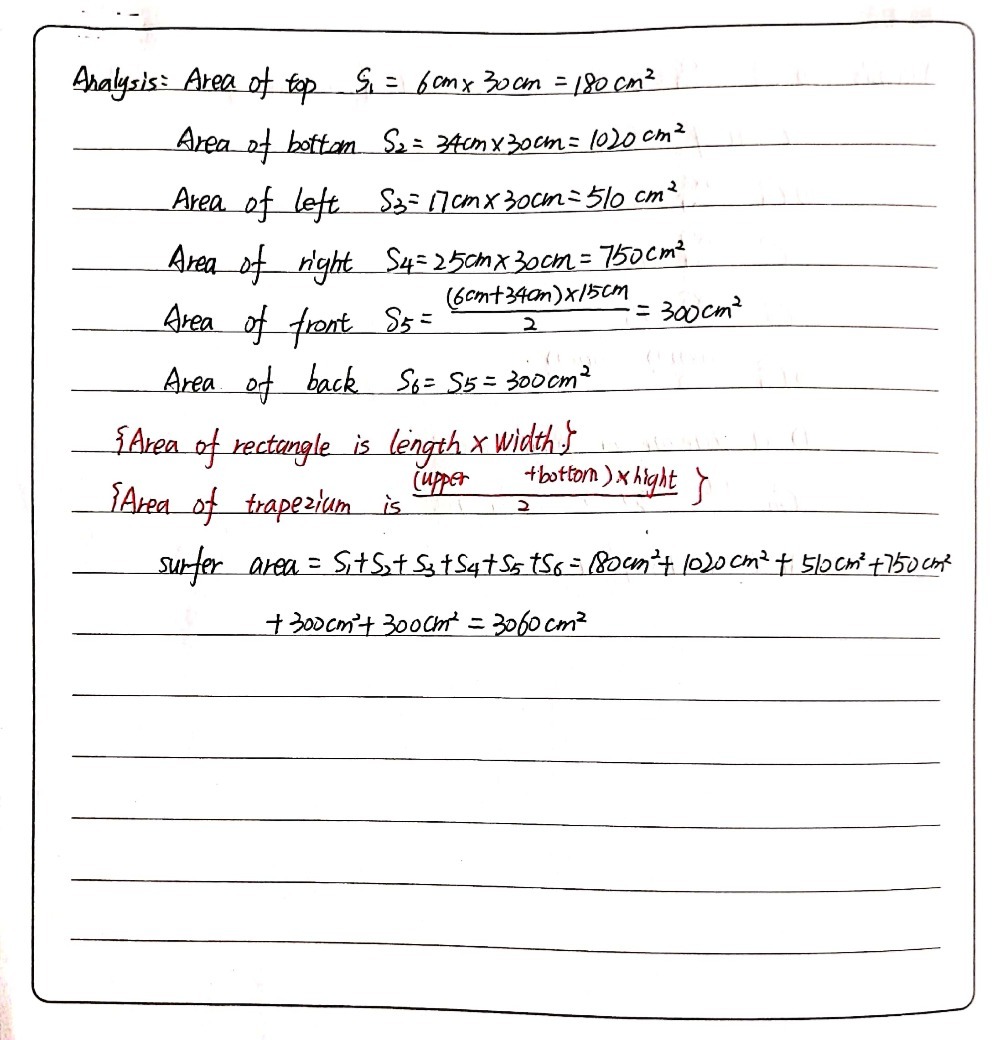 Analysis: Area of top S₁ = 6cm × 30cm = 180 cm²
Area of bottom S₂ = 34cm × 30cm = 1020 cm²
Area of left S3 = 17cm × 30cm = 510 cm²
Area of right S4 = 25cm × 30cm = 750cm²
Area of front S5 = (6cm+34cm)×15cm / 2 = 300cm²
Area of back S6 = S5 = 300cm²
{Area of rectangle is length × width.}
{Area of trapezium is (upper +bottom)×hight / 2 }
surfer area = S₁+S₂+S3+S4+S5+S6 = 180cm²+1020cm²+510cm²+750cm²
+300cm²+300cm² = 3060cm²